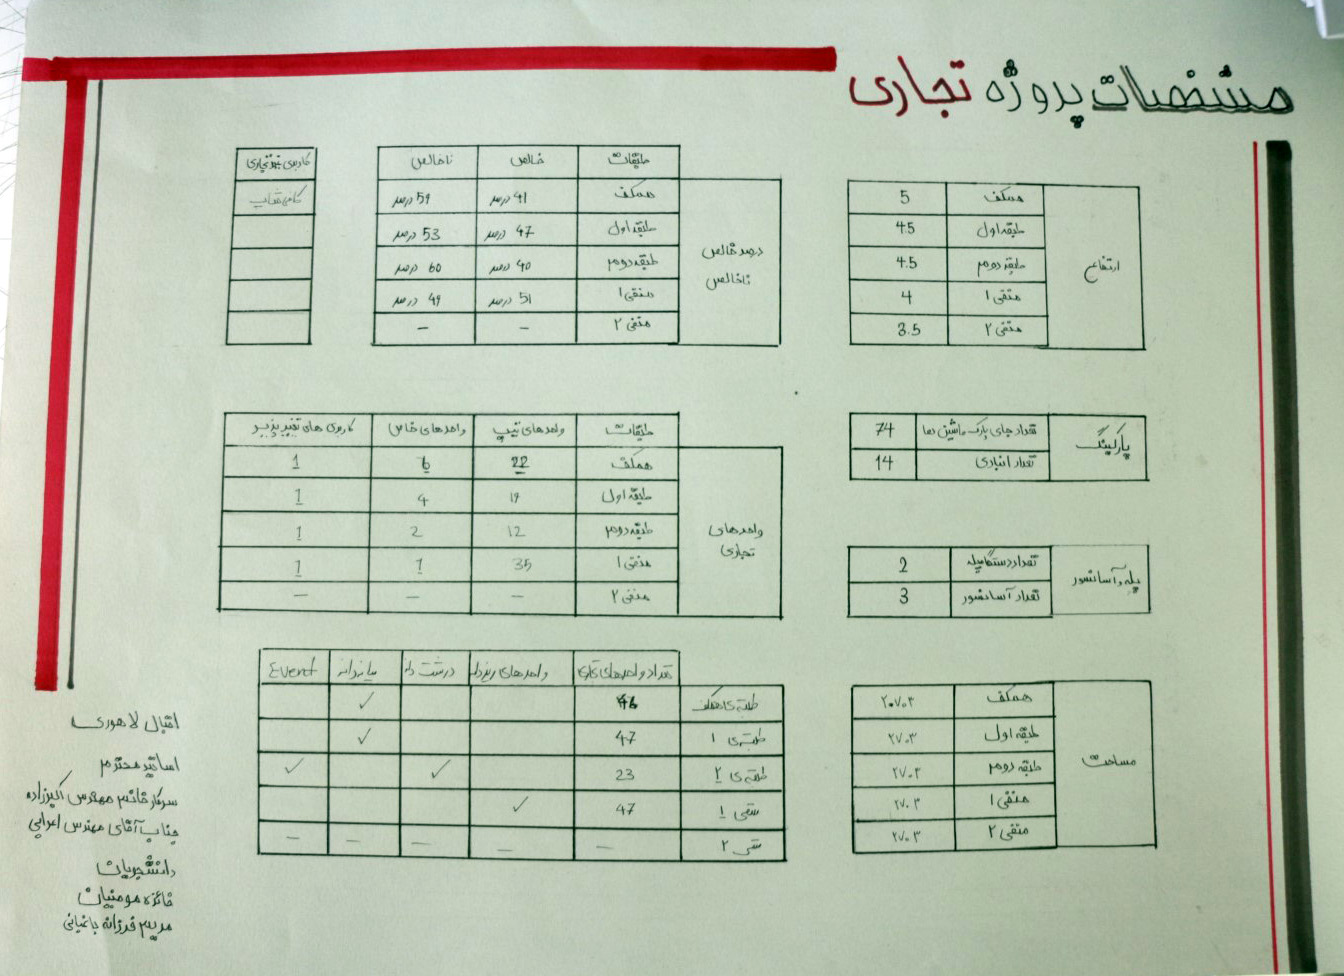 مشخصات پروژه تجاری
همکف 5
طبقه اول 4.5
طبقه دوم 4.5
منفی ۱ 4
منفی ۲ 3.5
ارتفاع
طبقات خالص ناخالص
همکف 41 درصد 59 درصد
طبقه اول 47 درصد 53 درصد
طبقه دوم 40 درصد 60 درصد
منفی ۱ 51 درصد 49 درصد
منفی ۲ – –
درصد خالص
ناخالص
کاربری غیر تجاری
کافی شاپ
پارکینگ
تعداد جای پارک ماشین ها 74
تعداد انباری 14
طبقات واحدهای تیپ واحدهای خاص کاربری های تغییر پذیر
همکف 22 6 1
طبقه اول 19 4 1
طبقه دوم 12 2 1
منفی ۱ 35 1 1
منفی ۲ – – –
واحدهای
تجاری
پله و آسانسور
تعداد دستگاه پله 2
تعداد آسانسور 3
تعداد واحدهای تجاری واحدهای ریزدانه درشت دانه میانه دانه Event
طبقه ی همکف 46 ✓
طبقه ی ۱ 47 ✓
طبقه ی ۲ 23 ✓ ✓
منفی ۱ 47 ✓
منفی ۲ – – – – –
مساحت
همکف ۲۰۷۰۳
طبقه اول ۲۷۰۳
طبقه دوم ۲۷۰۳
منفی ۱ ۲۷۰۳
منفی ۲ ۲۷۰۳
اقبال لاهوری
اساتید محترم
سرکار خانم مهندس اکبرزاده
جناب آقای مهندس اعرابی
دانشجویان
فائزه مومنیان
مریم فرزانه باغبانی